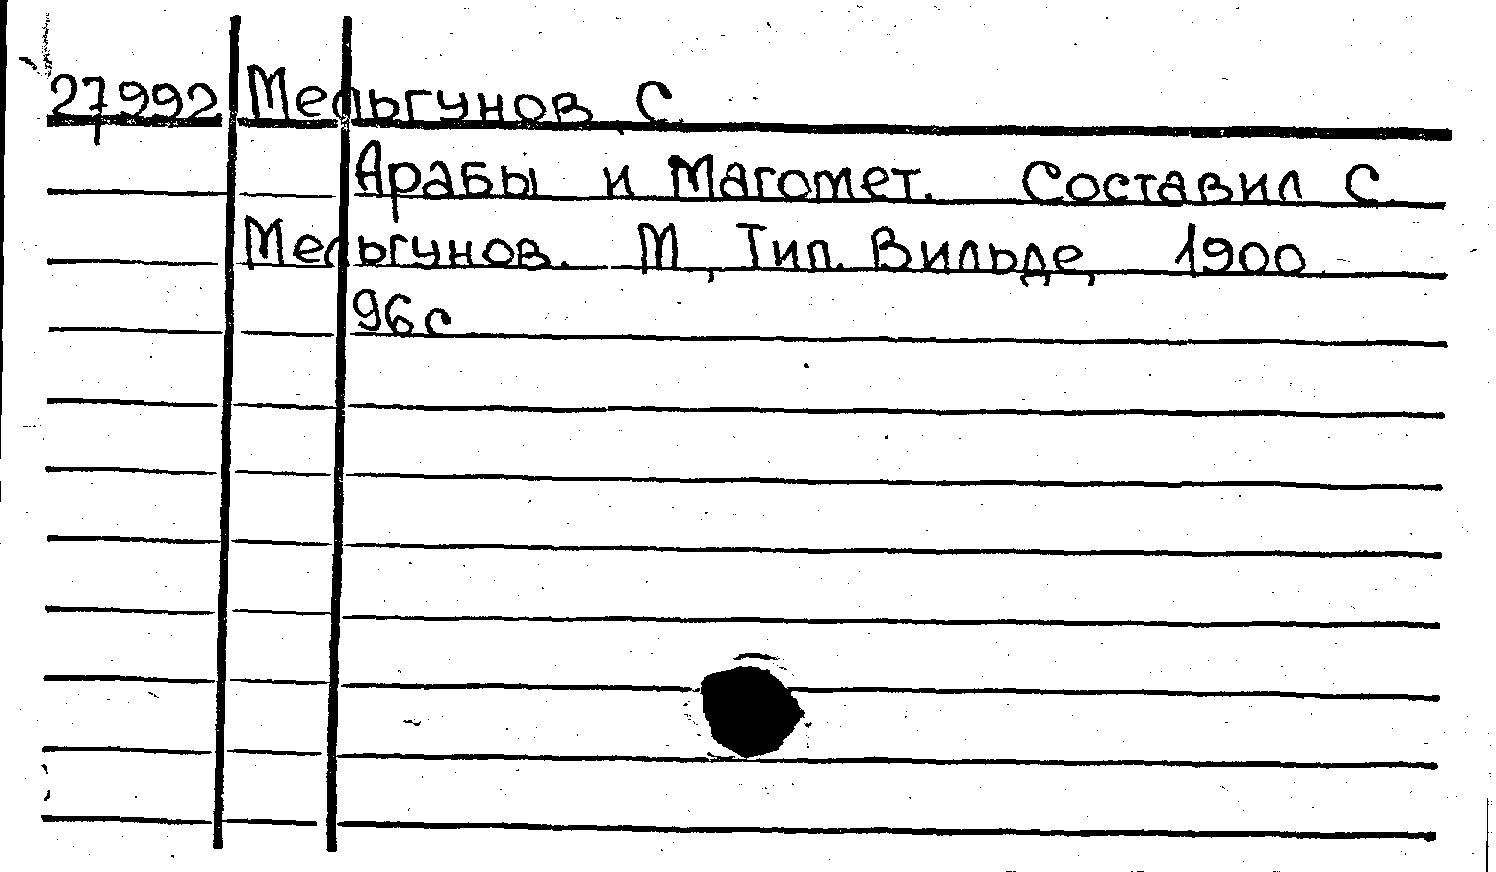 27992 Мельгунов, С.
Арабы и Магомет. Составил С.
Мельгунов. М, Тип. Вильде, 1900
96с